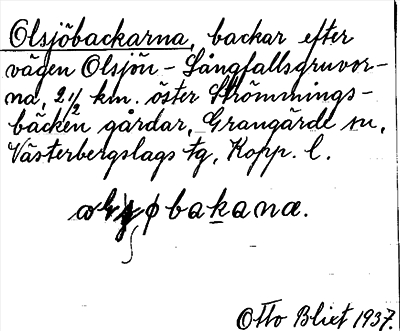 Olsjöbackarna, backar efter
vägen Olsjön - Långfallsgruvor-
na, 2 1/2 km. öster Strömmings-
bäcken gårdar, Grangärde sn,
Västerbergslags tg, Kopp. l.
Otto Blixt 1937.